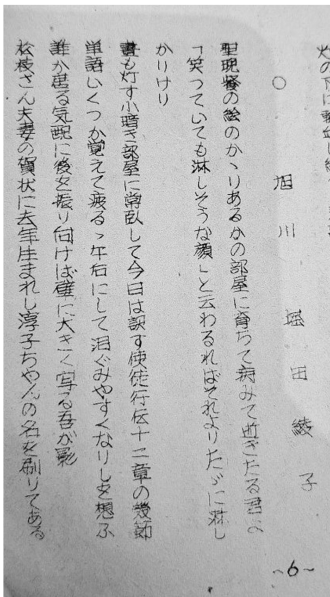 ○ 旭川 堀田綾子
聖晩餐の絵のかゝりあるかの部屋に育ちて病みて逝きたる君
「笑っていても淋しそうな顔」と云わるればそれよりたゞに淋し
かりけり
書も灯す小暗き部屋に常臥して今日は訳す使徒行伝十二章の幾節
単語いくつか覚えて疲るゝ午后にして泪ぐみやすくなりしを想ふ
誰か居る気配に後を振り向けば壁に大きく写る吾が影
松枝さん夫妻の賀状に去年生まれし淳子ちゃんの名を刷りてある
~6~